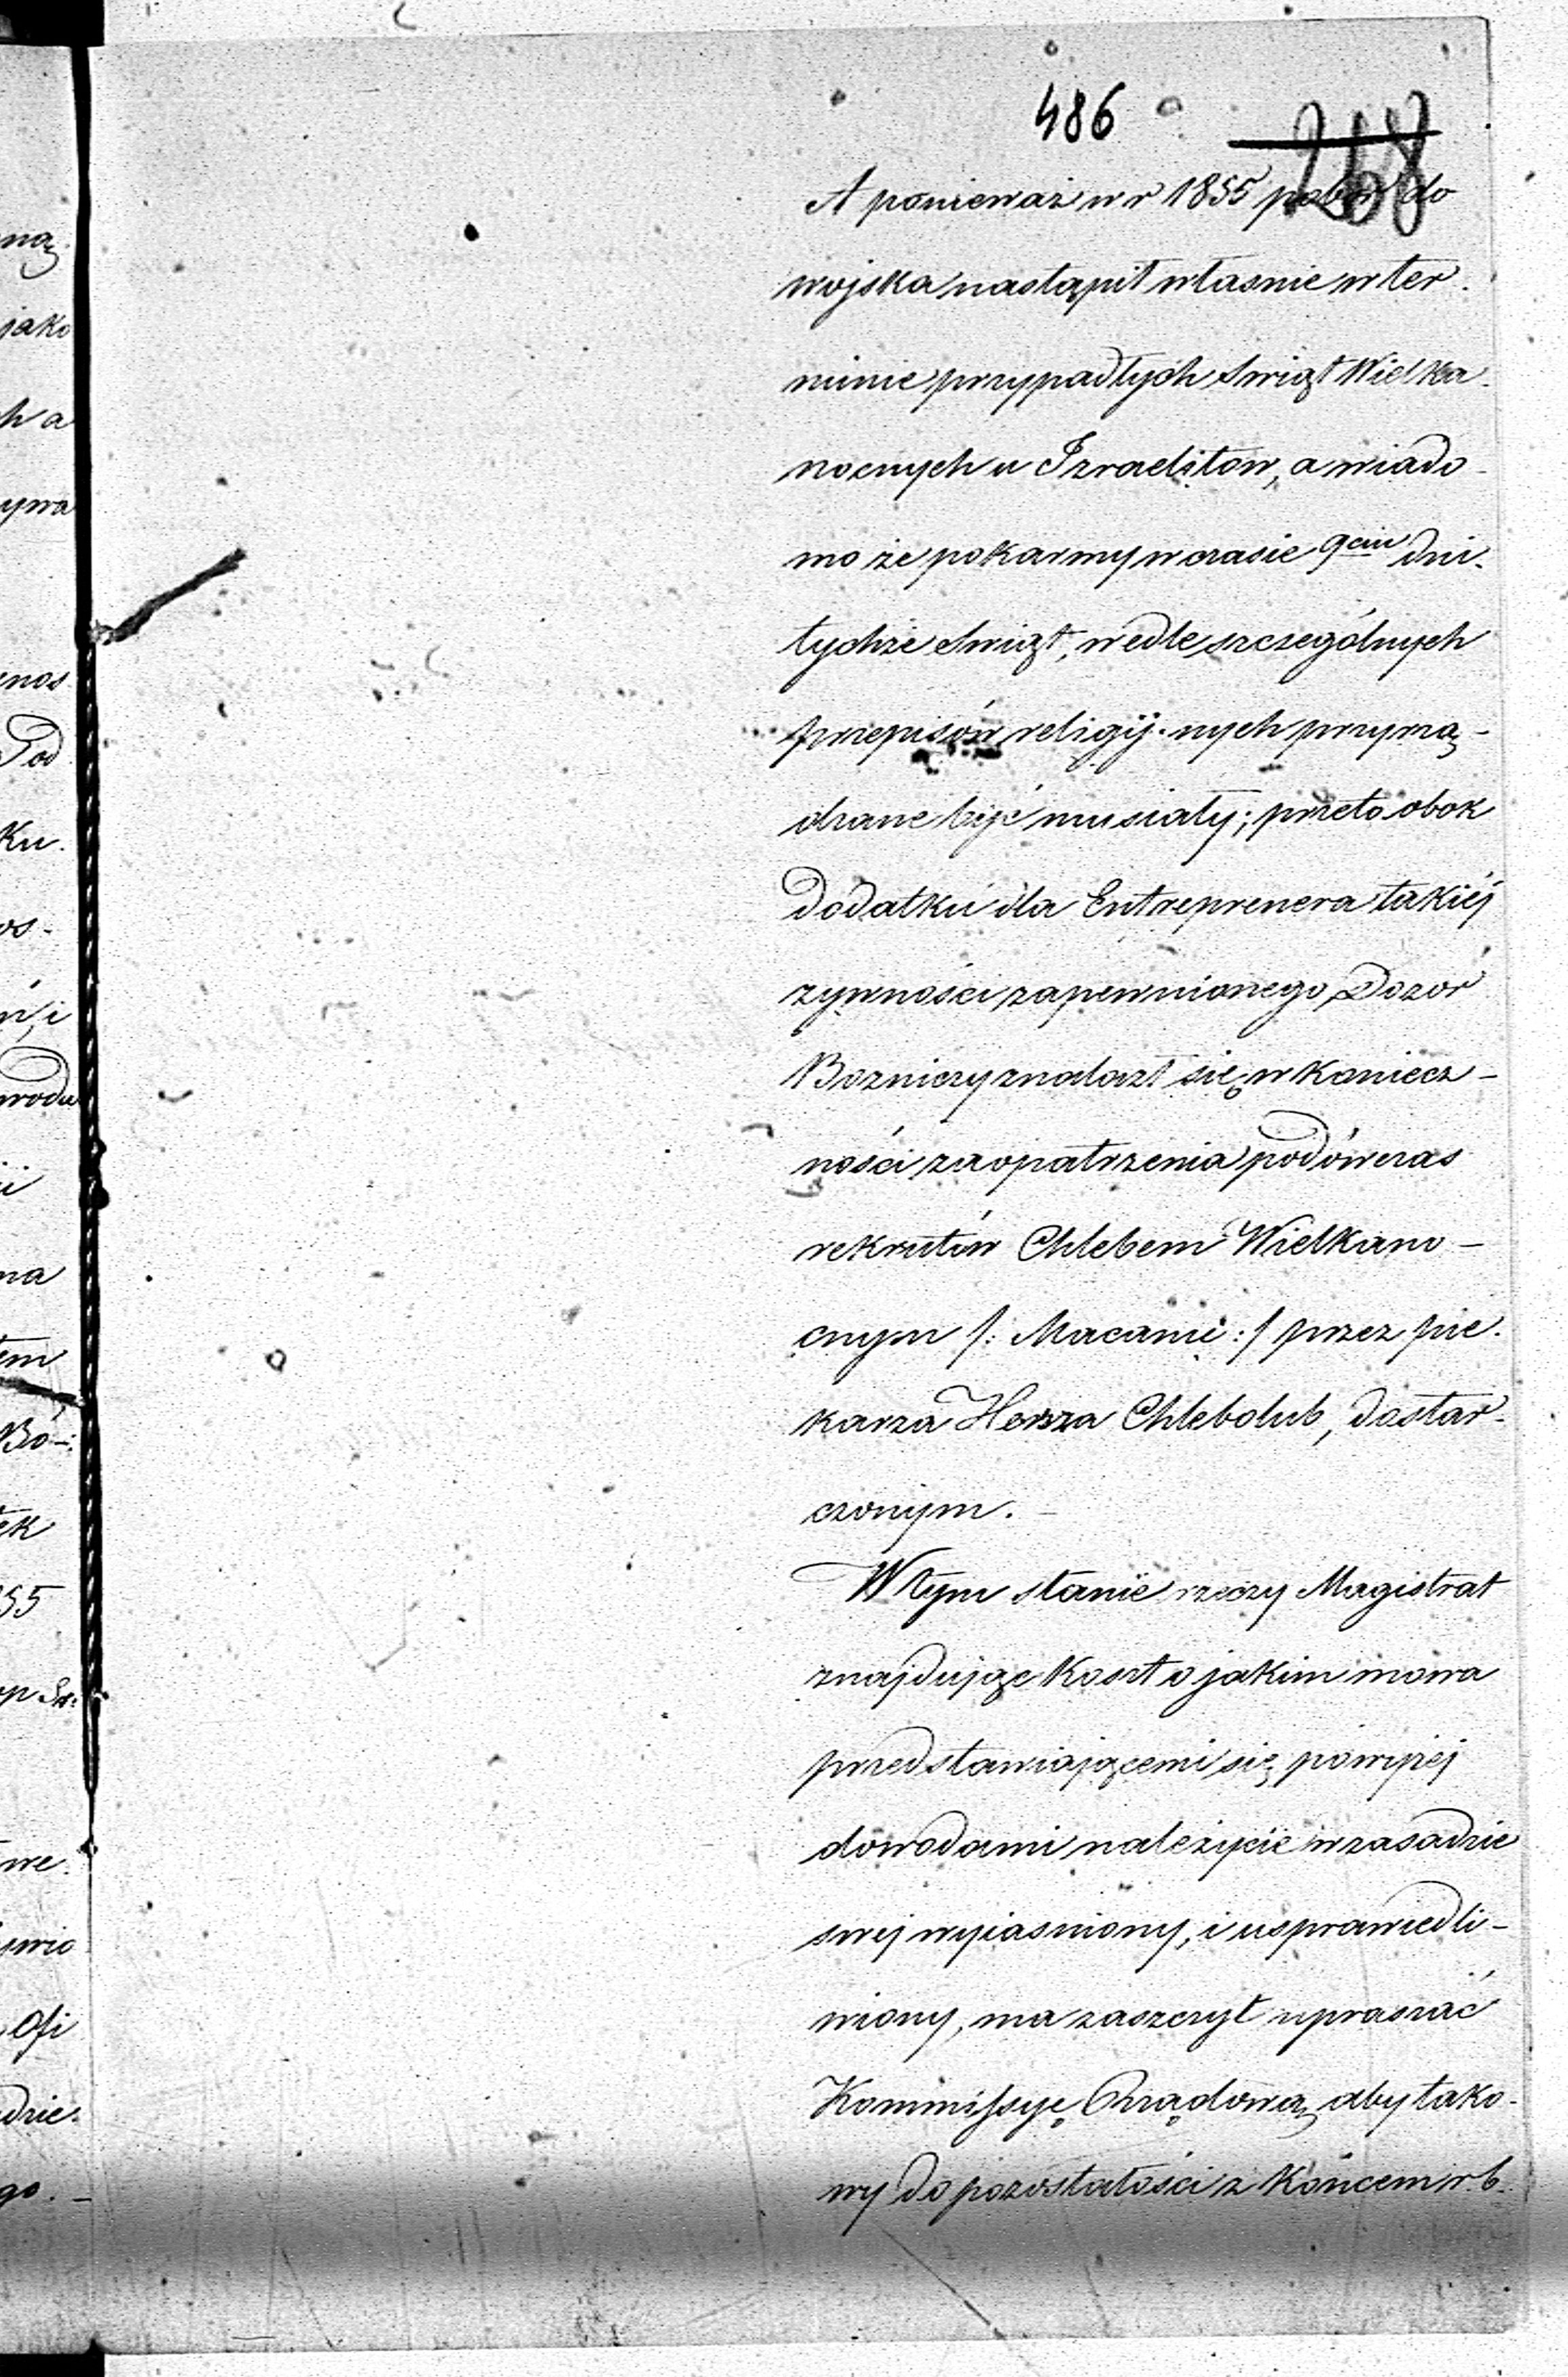 486
268
A ponieważ w r 1855 pobór do
wojska nastąpił własnie w ter.
minie przypadłych Swiąt Wielka-
nocnych u Izraelitów, a wiado-
mo że pokarmy w czasie 9ciu dni.
tychże Swiąt, wedle szczególnych
przepisów religij-nych przyrzą-
dzane być musiały; przeto obok
Dodatku dla Entreprenera takiéj
zywności zapewnionego, Dozór
Bozniczy znalazł się w koniecz-
ności zaopatrzenia podówczas
rekrutów Chlebem Wielkano-
cnym /: Macami :/ przez pie-
karza Hersza Chlebolub, dostar-
czonym. -
W tym stanie rzeczy Magistrat
znajdując koszt o jakim mowa
przedstawiającemi się powyżéj
dowodami należycie w zasadzie
swej wyiasniony, i usprawiedli-
wiony, ma zaszczyt upraszać
Kommissyę Rządową aby tako-
wy do pozostałości z końcem r. b.
ną
jako
h a
ywa
Pod
Ku.
os-
wodu
na
Bó-
55
we.
Ofi
dzie.
go. -